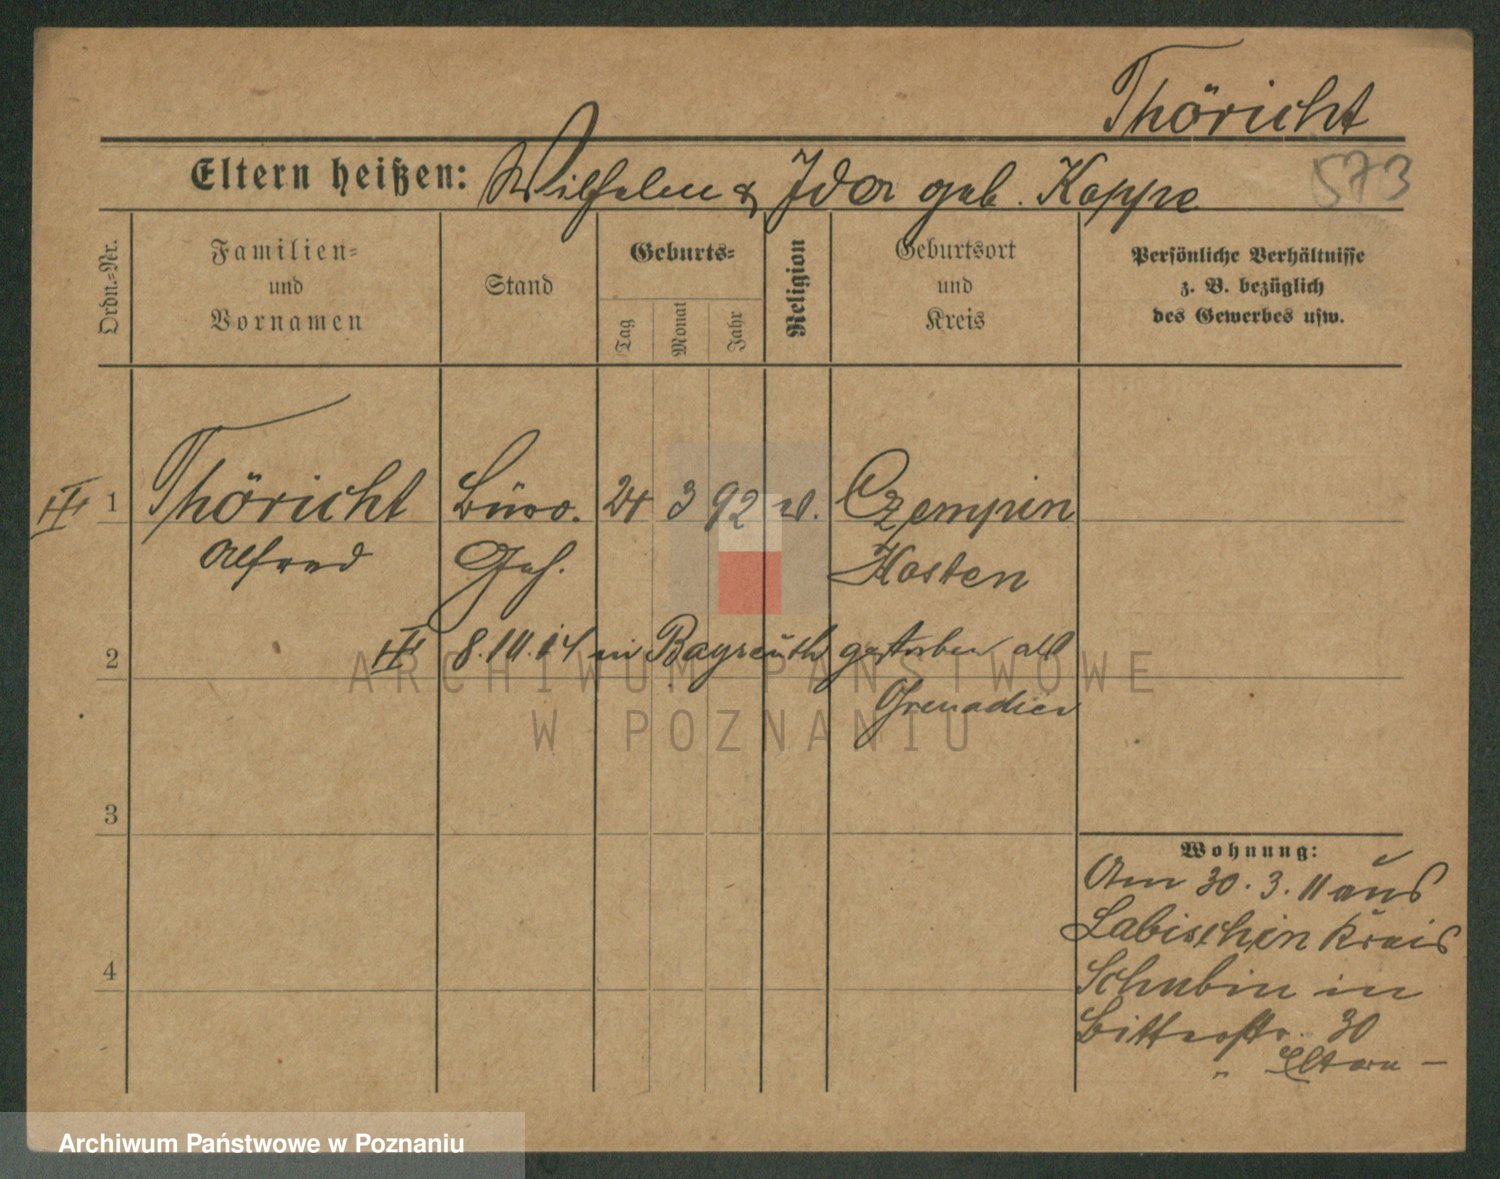 Thöricht
573
Eltern heißen: Wilhelm & Ida geb. Koppe
Ordn.-Nr.
Familien-
und
Vornamen
Stand
Geburts-
Tag
Monat
Jahr
Religion
Geburtsort
und
Kreis
Persönliche Verhältnisse
z. B. bezüglich
des Gewerbes usw.
1 Thöricht Büro. 24 3 92 Czempin
Alfred Geh. Kosten
2 8. 10. 14 in Bayreuth gestorben als
Grenadier
3
4
Wohnung:
Am 30. 3. 11 aus
Labischin Kreis
Schubin in
Bitterstr. 30
" Eltern -
ARCHIWUM PAŃSTWOWE
W POZNANIU
Archiwum Państwowe w Poznaniu